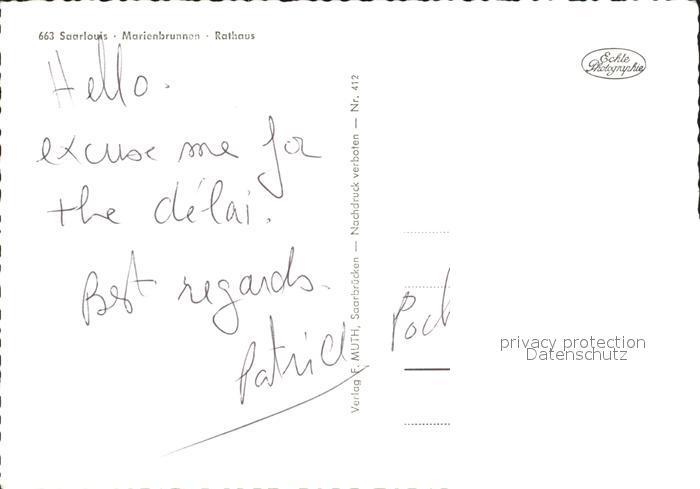 663 Saarlouis · Marienbrunnen · Rathaus
Echte
Photographie
Hello.
excuse me for
the délai.
Best regards.
Patrick
Verlag F. MUTH, Saarbrücken — Nachdruck verboten — Nr. 412
privacy protection
Datenschutz